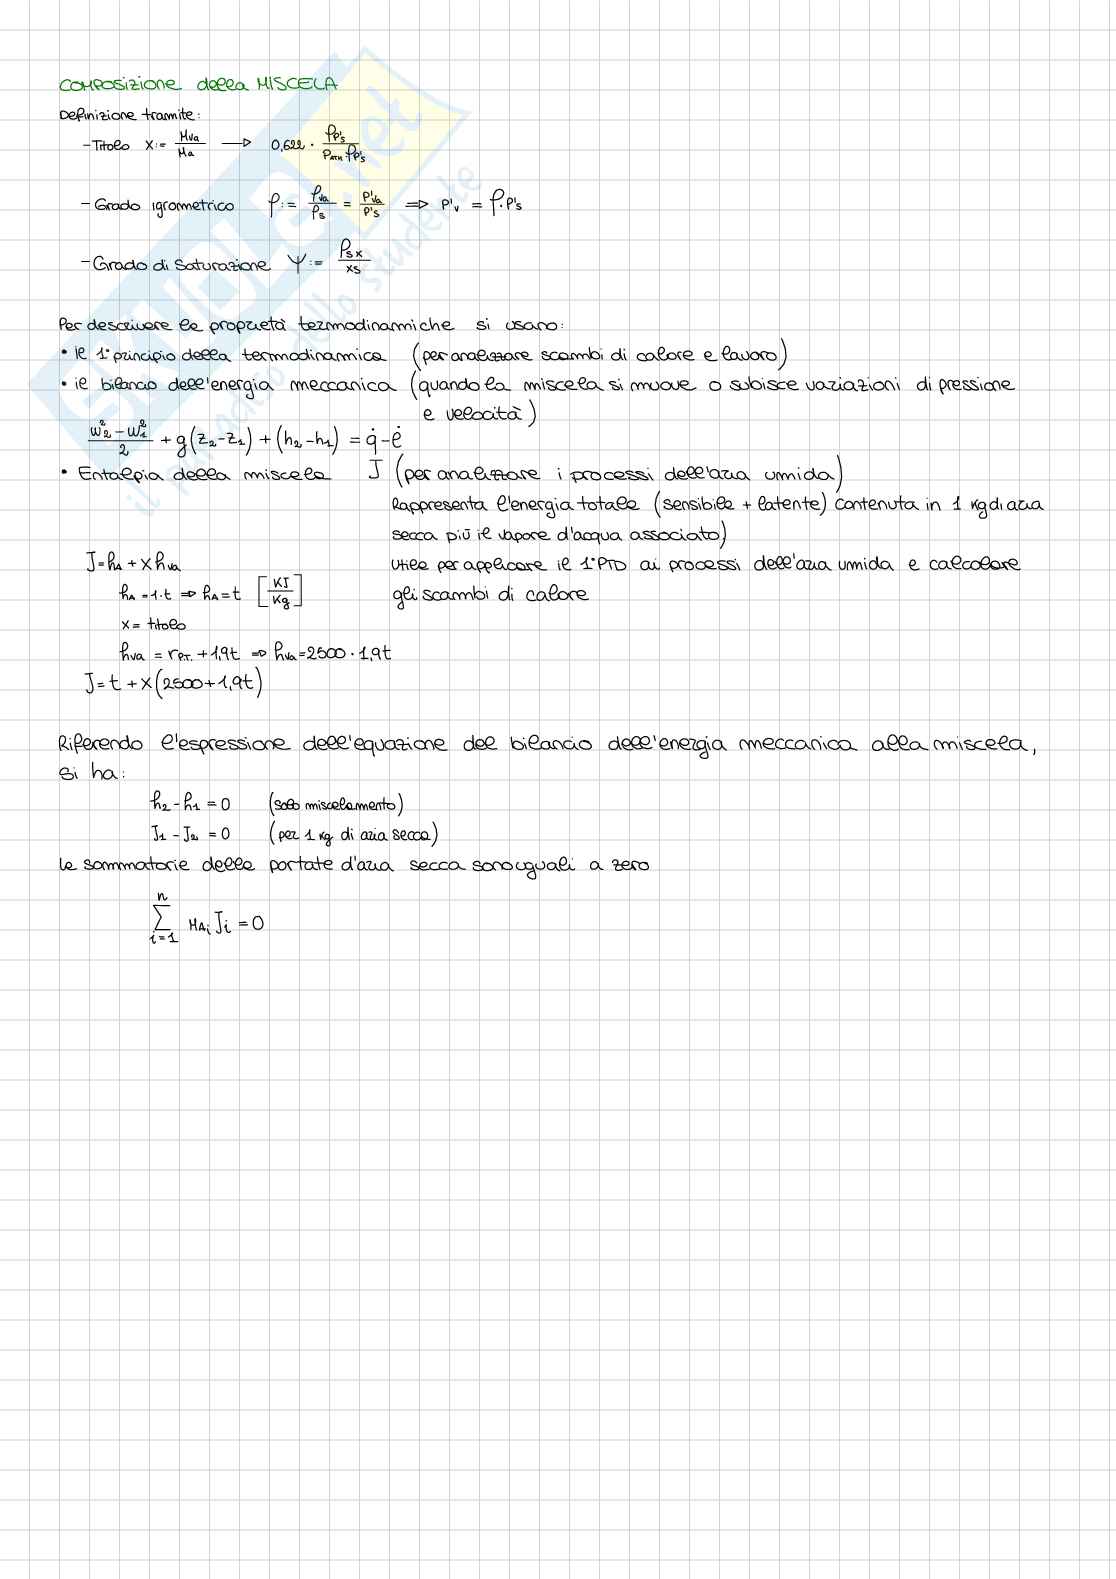 COMPOSIZIONE della MISCELA
Definizione tramite:
- Titolo X:= Mva/Ma → 0,622 · φP's / PATM φP's
- Grado igrometrico φ:= ρva/ρs = P'va/P's ⇒ P'v = φ·P's
- Grado di saturazione Ψ:= ρsx/xs
Per descrivere le proprietà termodinamiche si usano:
• il 1° principio della termodinamica (per analizzare scambi di calore e lavoro)
• il bilancio dell'energia meccanica (quando la miscela si muove o subisce variazioni di pressione
e velocità)
(w₂² - w₁²)/2 + g(z₂-z₁) + (h₂-h₁) = q̇ - ė
• Entalpia della miscela J (per analizzare i processi dell'aria umida)
Rappresenta l'energia totale (sensibile + latente) contenuta in 1 kg di aria
secca più il vapore d'acqua associato)
J = hA + X hva
Utile per applicare il 1°PTD ai processi dell'aria umida e calcolare
hA = 1·t ⇒ hA = t [KJ/Kg]
gli scambi di calore
x = titolo
hva = rP.T. + 1,9t ⇒ hva = 2500 · 1,9t
J = t + X(2500+1,9t)
Riferendo l'espressione dell'equazione del bilancio dell'energia meccanica alla miscela,
si ha:
h₂ - h₁ = 0 (solo miscelamento)
J₁ - J₂ = 0 (per 1 kg di aria secca)
Le sommatorie delle portate d'aria secca sono uguali a zero
∑ᵢ₌₁ⁿ MAi Ji = 0
SKUOLA.net
il paradiso dello studente